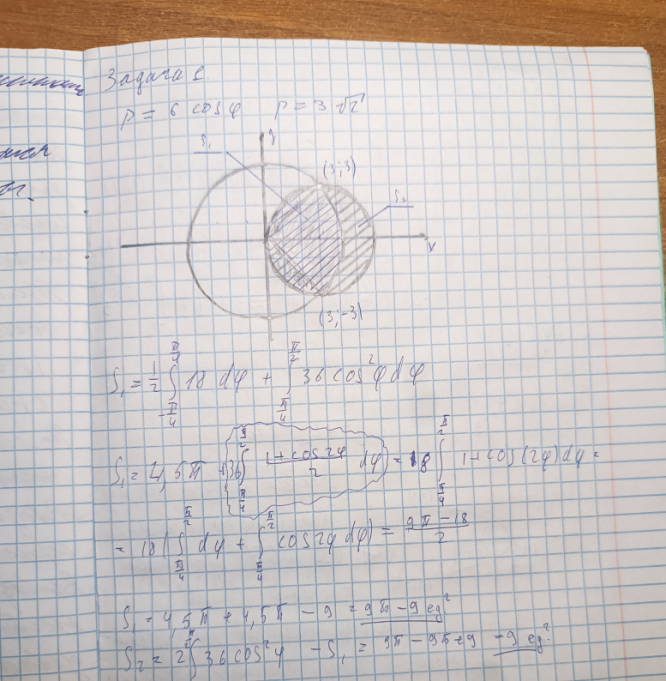 Задача 1
ρ = 6 cos φ ρ = 3 √2
S₁ y (3;3) S₂
x
(3;-3)
S₁ = 1/2 ∫_{-π/4}^{π/4} 18 dφ + ∫_{π/4}^{π/2} 36 cos²φ dφ
S₁ = 4,5π + 36 ∫_{π/4}^{π/2} (1+cos2φ)/2 dφ = 18 ∫_{π/4}^{π/2} 1+cos(2φ)dφ =
= 18 ( ∫_{π/4}^{π/2} dφ + ∫_{π/4}^{π/2} cos2φ dφ) = (9π - 18)/2
S₁ = 4,5π + 4,5π - 9 = 9π - 9 ед²
S₂ = 2 ∫ 36 cos²φ - S₁ = 9π - 9π + 9 = 9 ед²